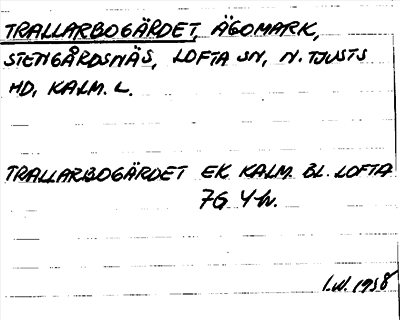 TRALLARBOGÄRDET, ÄGOMARK,
STENGÅRDSNÄS, LOFTA SN, N. TJUSTS
HD, KALM. L.
TRALLARBOGÄRDET EK KALM. BL. LOFTA
7G 4h.
I.W. 1958